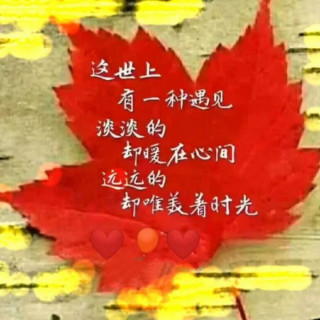 这世上
有一种遇见
淡淡的
却暖在心间
远远的
却唯美着时光